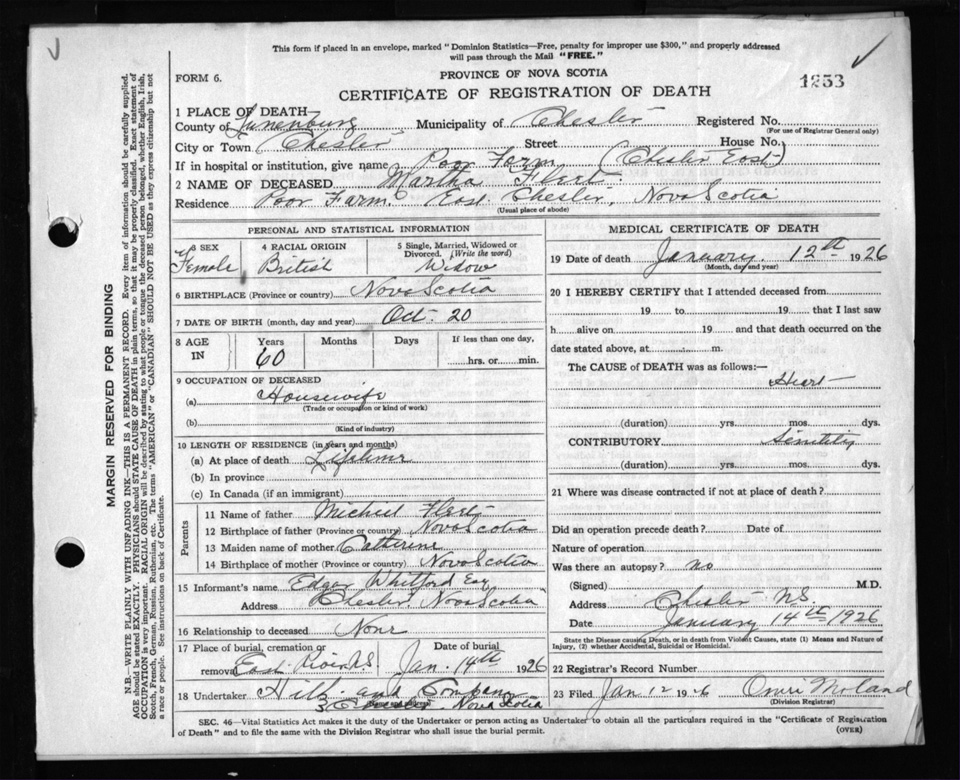 This form if placed in an envelope, marked "Dominion Statistics—Free, penalty for improper use $300," and properly addressed
will pass through the Mail "FREE."
FORM 6.
PROVINCE OF NOVA SCOTIA
1253
CERTIFICATE OF REGISTRATION OF DEATH
1 PLACE OF DEATH
County of Lunenburg Municipality of Chester Registered No.
(For use of Registrar General only)
City or Town Chester Street House No.
If in hospital or institution, give name Poor Farm (Chester East)
2 NAME OF DECEASED Martha Fleet.
Residence Poor Farm. East Chester, Nova Scotia
(Usual place of abode)
PERSONAL AND STATISTICAL INFORMATION
3 SEX Female
4 RACIAL ORIGIN British
5 Single, Married, Widowed or Divorced. (Write the word) Widow
6 BIRTHPLACE (Province or country) Nova Scotia
7 DATE OF BIRTH (month, day and year) Oct. 20
8 AGE IN Years 60 Months Days If less than one day, hrs. or min.
9 OCCUPATION OF DECEASED
(a) Housewife
(Trade or occupation or kind of work)
(b)
(Kind of industry)
10 LENGTH OF RESIDENCE (in years and months)
(a) At place of death Lifetime
(b) In province
(c) In Canada (if an immigrant)
Parents
11 Name of father Fleet
12 Birthplace of father (Province or country) Nova Scotia
13 Maiden name of mother Catherine
14 Birthplace of mother (Province or country) Nova Scotia
15 Informant's name Edgar Whitford Esq
Address Chester, Nova Scotia
16 Relationship to deceased None
17 Place of burial, cremation or removal East River N.S. Date of burial Jan. 14th 1926
18 Undertaker and Company
(Name and address) Nova Scotia
MEDICAL CERTIFICATE OF DEATH
19 Date of death January 12th 1926
(Month, day and year)
20 I HEREBY CERTIFY that I attended deceased from
19 to 19 that I last saw
h alive on 19 and that death occurred on the
date stated above, at m.
The CAUSE of DEATH was as follows:—
Heart
(duration) yrs. mos. dys.
CONTRIBUTORY Senility
(duration) yrs. mos. dys.
21 Where was disease contracted if not at place of death?
Did an operation precede death? Date of
Nature of operation
Was there an autopsy? no
(Signed) M.D.
Address Chester N.S.
Date January 14th 1926
State the Disease causing Death, or in death from Violent Causes, state (1) Means and Nature of
Injury, (2) whether Accidental, Suicidal or Homicidal.
22 Registrar's Record Number
23 Filed Jan 12 1926 Omri Moland
(Division Registrar)
SEC. 46—Vital Statistics Act makes it the duty of the Undertaker or person acting as Undertaker to obtain all the particulars required in the "Certificate of Registration
of Death" and to file the same with the Division Registrar who shall issue the burial permit.
(OVER)
MARGIN RESERVED FOR BINDING
N.B.—WRITE PLAINLY WITH UNFADING INK—THIS IS A PERMANENT RECORD. Every item of information should be carefully supplied.
AGE should be stated EXACTLY. PHYSICIANS should STATE CAUSE OF DEATH in plain terms, so that it may be properly classified. Exact statement of
OCCUPATION is very important. RACIAL ORIGIN will be described by stating to what people or tongue the deceased person belonged, whether English, Irish,
Scotch, French, German, Russian, Ruthenian, etc. The terms "AMERICAN" or "CANADIAN" SHOULD NOT BE USED as they express citizenship but not
a race or people. See instructions on back of Certificate.